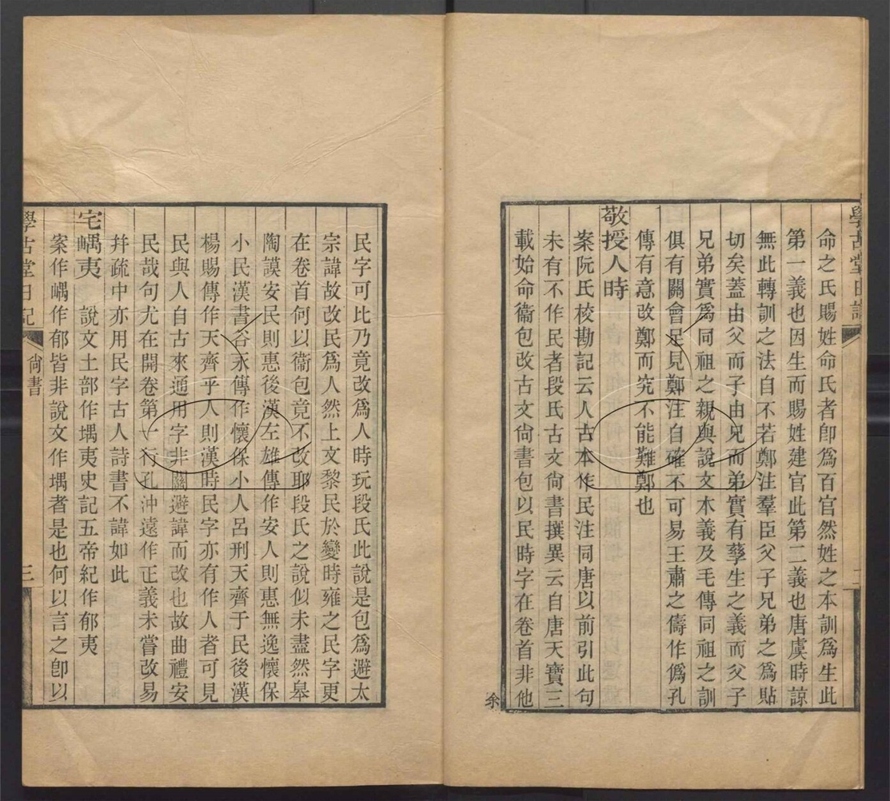 學古堂日記
命之氏賜姓命氏者卽爲百官然姓之本訓爲生此
第一義也因生而賜姓建官此第二義也唐虞時諒
無此轉訓之法自不若鄭注羣臣父子兄弟之爲貼
切矣蓋由父而子由兄而弟實有孳生之義而父子
兄弟實爲同祖之親與說文木義及毛傳同祖之訓
俱有關會足見鄭注自確不可易王肅之儔作僞孔
傳有意改鄭而究不能難鄭也
敬授人時
案阮氏校勘記云人古本作民注同唐以前引此句
未有不作民者段氏古文尙書撰異云自唐天寶三
載始命衞包改古文尙書包以民時字在卷首非他
民字可比乃竟改爲人時玩段氏此說是包爲避太
宗諱故改民爲人然上文黎民於變時雍之民字更
在卷首何以衞包竟不改耶段氏之說似未盡然皋
陶謨安民則惠後漢左雄傳作安人則惠無逸懷保
小民漢書谷永傳作懷保小人呂刑天齊于民後漢
楊賜傳作天齊乎人則漢時民字亦有作人者可見
民與人自古來通用字非關避諱而改也故曲禮安
民哉句尤在開卷第一行孔沖遠作正義未嘗改易
幷疏中亦用民字古人詩書不諱如此
宅嵎夷 說文土部作堣夷史記五帝紀作郁夷
案作嵎作郁皆非說文作堣者是也何以言之卽以
學古堂日記 尙書 三